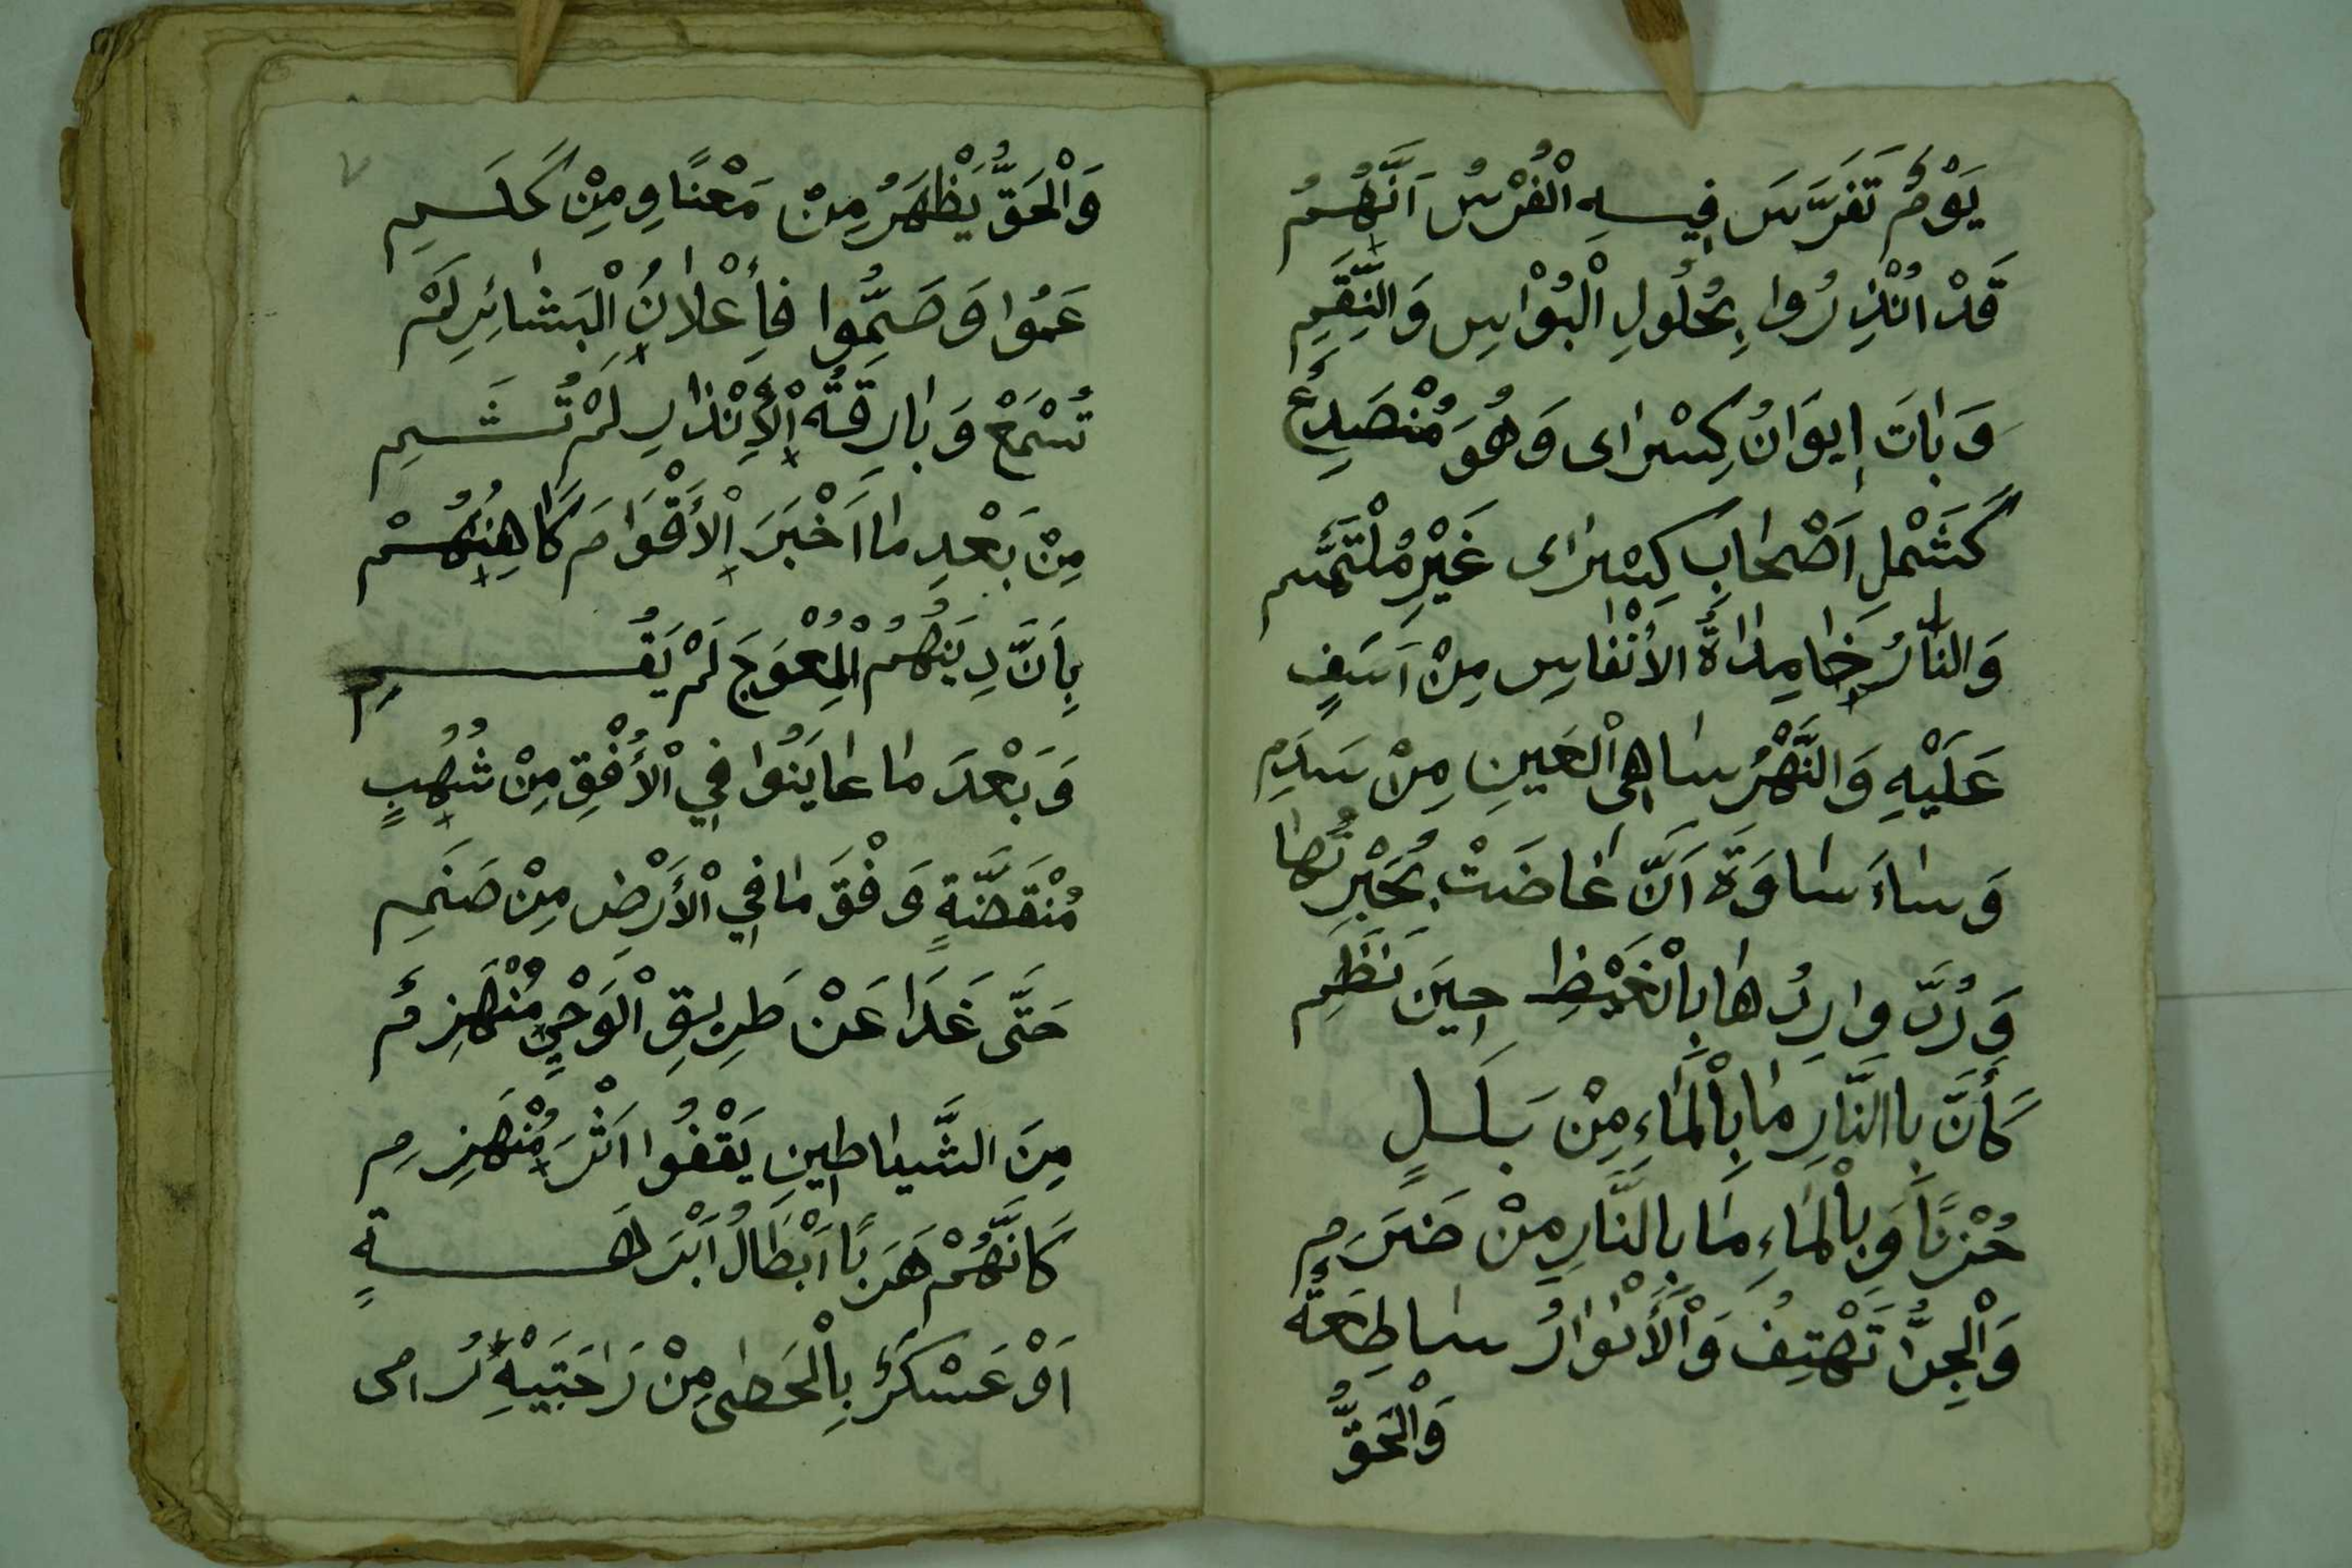 يَوْمٌ تَفَرَّسَ فِيهِ الْفُرْسُ اَنَّهُمُ
قَدْ اُنْذِرُوا بِحُلُولِ الْبُؤْاسِ وَالنِّقَمِ
وَبَاتَ اِيوَانُ كِسْرَاى وَهُوَ مُنْصَدِعٌ
كَشَمْلِ اَصْحَابِ كِسْرَاى غَيْرِ مُلْتَئَمِ
وَالنَّارُ خَامِدَاةُ الأَنْفَاسِ مِنْ اَسَفٍ
عَلَيْهِ وَالنَّهْرُ سَاهِى الْعَيْنِ مِنْ سَدَمِ
وَسَاءَ سَاوَةَ اَنَّ غَاضَتْ بُحَيْرَتُهَا
وَرُدَّ وَارِدُهَا بِالْغَيْظِ حِينَ نَظَمِ
كَأَنَّ بِاالنَّارِ مَا بِالْمَاءِ مِنْ بَلَلٍ
حُزْنًا وَبِالْمَاءِ مَا بِالنَّارِ مِنْ ضَرَمِ
وَالْجِنُّ تَهْتِفُ وَالْأَنْوَارُ سَاطِعَةٌ
وَالْحَقُّ
٧
وَالْحَقُّ يَظْهَرُ مِنْ مَعْنًا وِمِنْ كَلَمِ
عَمُوا وَصَمُّوا فَإِعْلَانُ الْبَشَائِرِ لَمْ
تُسْمَعْ وَبَارِقَةُ الْأِنْذَارِ لَمْ تُشَمِ
مِنْ بَعْدِ مَا اَخْبَرَ الْأَقْوَامَ كَاهِنُهُمْ
بِاَنَّ دِينَهُمُ الْمُعْوَجَ لَمْ يَقُمِ
وَبَعْدَ مَا عَايَنُوا فِي الْأُفْقِ مِنْ شُهُبٍ
مُنْقَضَّةٍ وَفْقَ مَا فِي الْأَرْضِ مِنْ صَنَمِ
حَتَّى غَدَا عَنْ طَرِيقِ الْوَحْيِ مُنْهَزِمٌ
مِنَ الشَّيَاطِينِ يَقْفُوا اَثْرَ مُنْهَزِمِ
كَانَّهُمْ هَرَبًا اَبْطَالُ اَبْرَهَةٍ
اَوْ عَسْكَرٌ بِالْحَصَى مِنْ رَاحَتَيْهِ رُامِى